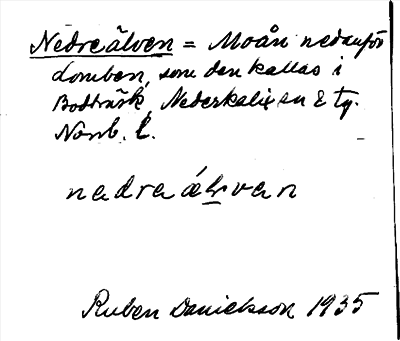 Nedreälven = Moån nedanför
Lomben, som den kallas i
Bodträsk, Nederkalix sn & tg.
Norrb. l.
nedreälvan
Ruben Danielsson 1935